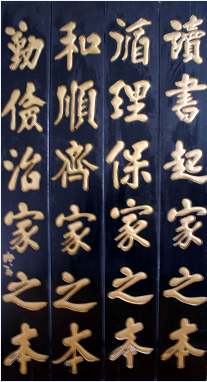 讀書起家之本
循理保家之本
和順齊家之本
勤儉治家之本